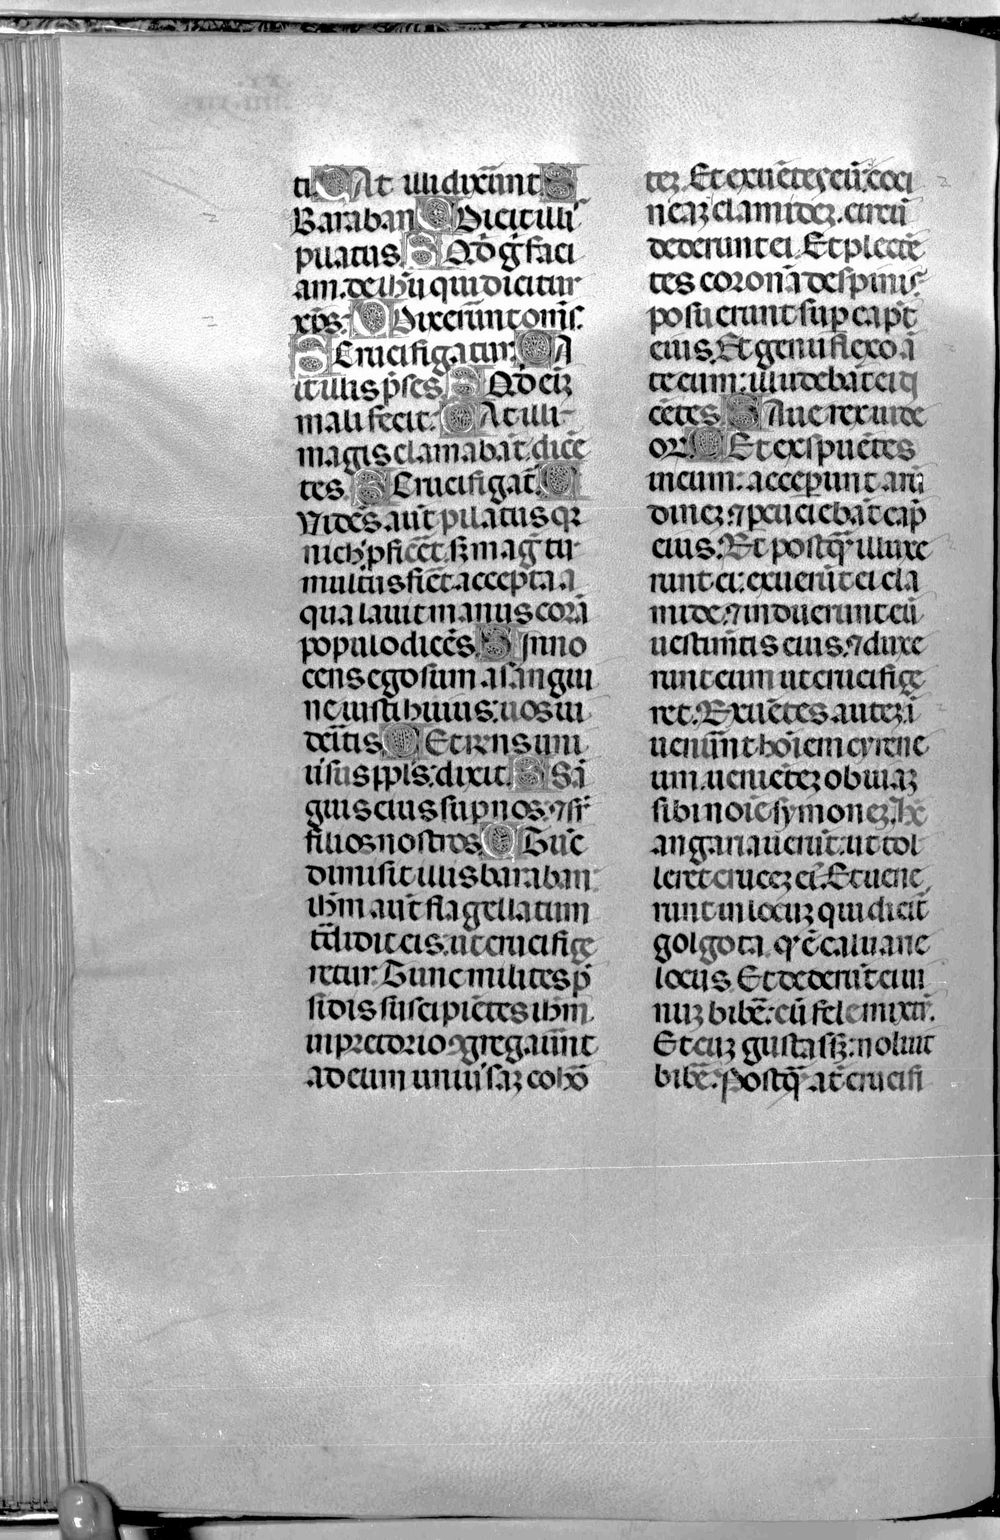 ti. C At illi dixerũnt. S
Baraban C Dicit illi
pilatus. S Q̃d g̃ faci
am. de ih̃u qui dicitur
xp̃s: C Dixerũnt om̃s.
S Crucifigatur. C A
it illis p̃ses. S Q̃d eĩz
mali fecit: C At illi
magis clamabãt. dicẽ
tes. S Crucifigat̃. C
Uidẽs. aũt pilatus qz
nich̃ p̃ficẽt. sz mag̃ tu
multus fiẽt. accepta a
qua lauit manus corã
populo dicẽs. S Inno
cens ego sum a sangui
ne iusti huius: uos ui
deritis C Et rens uni
ũsus pp̃ls: dixit. S Sã
guis eius sup nos. ⁊ sr̃
filios nostros. C Tũc
dimisit illis baraban:
ih̃m aũt flagellatum
tr̃didit eis. ut crucifige
retur. Tunc milites p̃
sidis suscipiẽtes ih̃m.
in pretorio ꝯgregaũnt
ad eum uniũsaz cohõ
tez. Et exuẽtes eũ: coci
neaz clamidez. circũ
dederunt ei. Et plectẽ
tes coronã de spinis:
posuerunt sup cap̃t
eius. Et genu flexo ã
te eum: illudebãt ei d̃
cẽtes. S Aue rex iude
oꝝ. C Et exspuẽtes
in eum: acceperunt arũ
dinez. ⁊ pcuciebãt cap̃
eius. Et postq̃ illuxe
runt ei: exuerũt ei cla
mide. ⁊ induerunt eũ
uestim̃tis eius. ⁊ duxe
runt eum ut crucifige
ret. Exuẽtes autez. ĩ
uenũnt hoĩem cyrene
um. ueniẽtez obuiaz
sibi noĩe symonez. Hc̃
angariauerũt: ut tol
leret crucez eĩ. Et uene
runt in locuz qui dicit̃
golgota. q̃ ẽ caluarie
locus. Et dederũt ei ui
nuz bibẽ: cũ fele mixtũ.
Et cuz gustassz: noluit
bibẽ. Postq̃ at̃ crucifi